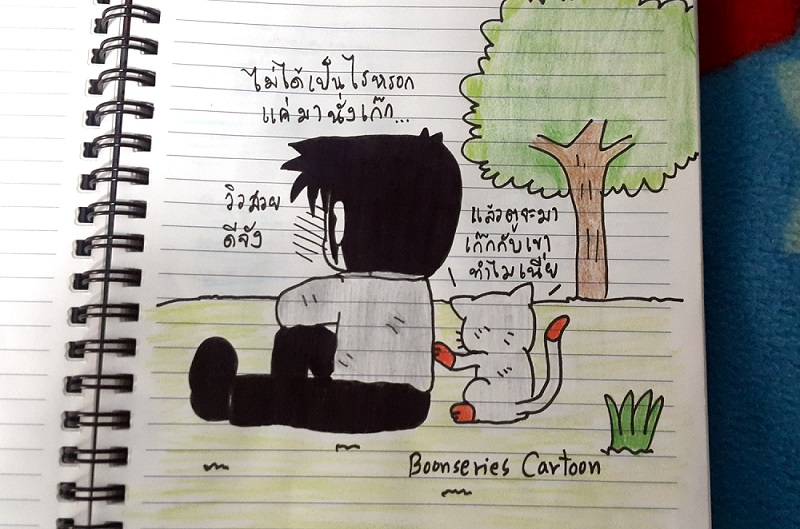 ไม่ได้เป็นไรหรอก
แค่มานั่งเก๊ก...
วิวสวย
ดีจัง
แล้วตูจะมา
เก๊กกับเขา
ทำไมเนี่ย
Boonseries Cartoon